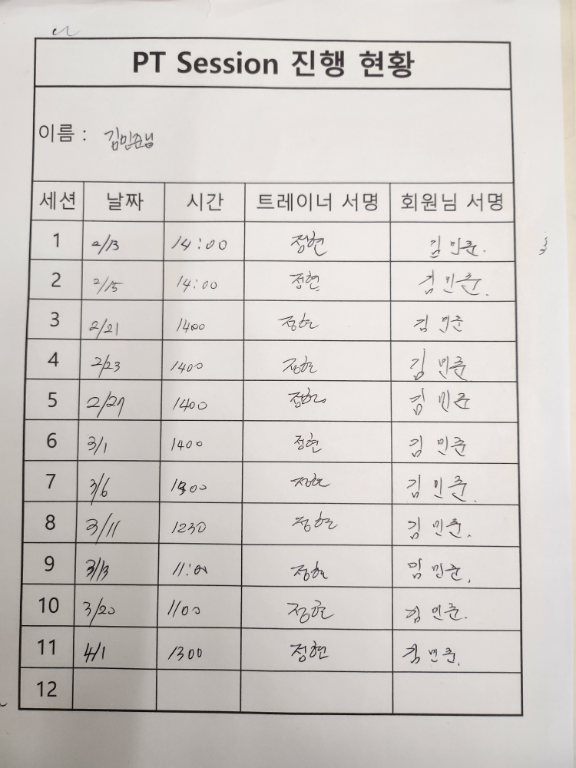 PT Session 진행 현황
이름 : 김민준님
세션 날짜 시간 트레이너 서명 회원님 서명
1 2/13 14:00 정현 김민준.
2 2/15 14:00 정현 김민준.
3 2/21 1400 정현 김민준
4 2/23 1400 정현 김민준
5 2/27 1400 정현 김민준
6 3/1 1400 정현 김민준
7 3/6 정현 김민준.
8 3/11 1230 정현 김민준.
9 3/13 11:00 정현 김민준.
10 3/20 1100 정현 김민준.
11 4/1 1300 정현 김민준.
12